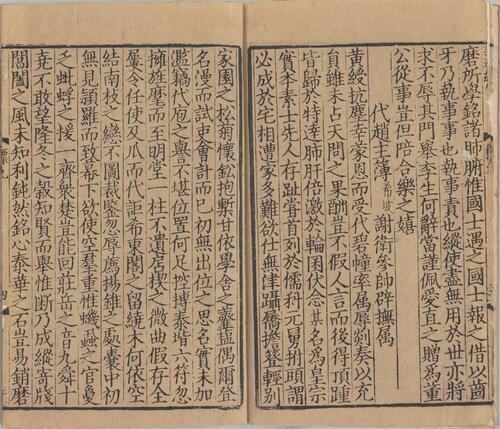 磨所學銘諸肺腑惟國士遇之國士報之借以齒
牙乃執事事也執事責也縱使盡無用於世亦將
求不辱其門舉李生何辭當謹佩愛直之贈爲董
公從事豈但陪合樂之嬉
代趙主簿希坡謝衛參帥辟撫屬
黃綬抗塵幸蒙恩而受代碧幢率屬辱剡奏以充
員雖未占天問之果酬豈不假人言而後得頂踵
皆歸於特達肺肝倍激於輪囷伏念某名爲皇宗
實本素士先人存趾甞首列於儒科元舅拊頭謂
必成於宅相遭家多難欲仕無津躡蹻擔簦輕別
家園之松菊懷鈆抱槧甘依學舍之虀鹽偶爾登
名漫而試吏會計而已初無出位之思名實未加
濫竊代庖之舉言不堪位置何足控摶泰堦六符忽
擁旄麾而至明堂一柱不遺扂楔之微曲假存全
屢令任使及瓜而代詎希東閤之留繞木何依空
結南枝之戀不圖裁鑒忽辱薦揚錐之處囊中初
無見頴羅而致幕下欲使空羣重惟蟣蝨之官憂
乏蚍蜉之援一齊衆楚豈能回莊岳之音九舜十
堯不敢望隆冬之穀知賢而舉惟斷乃成縱寄牋
閶闔之風未知利鈍然銘心泰華之石豈易銷磨